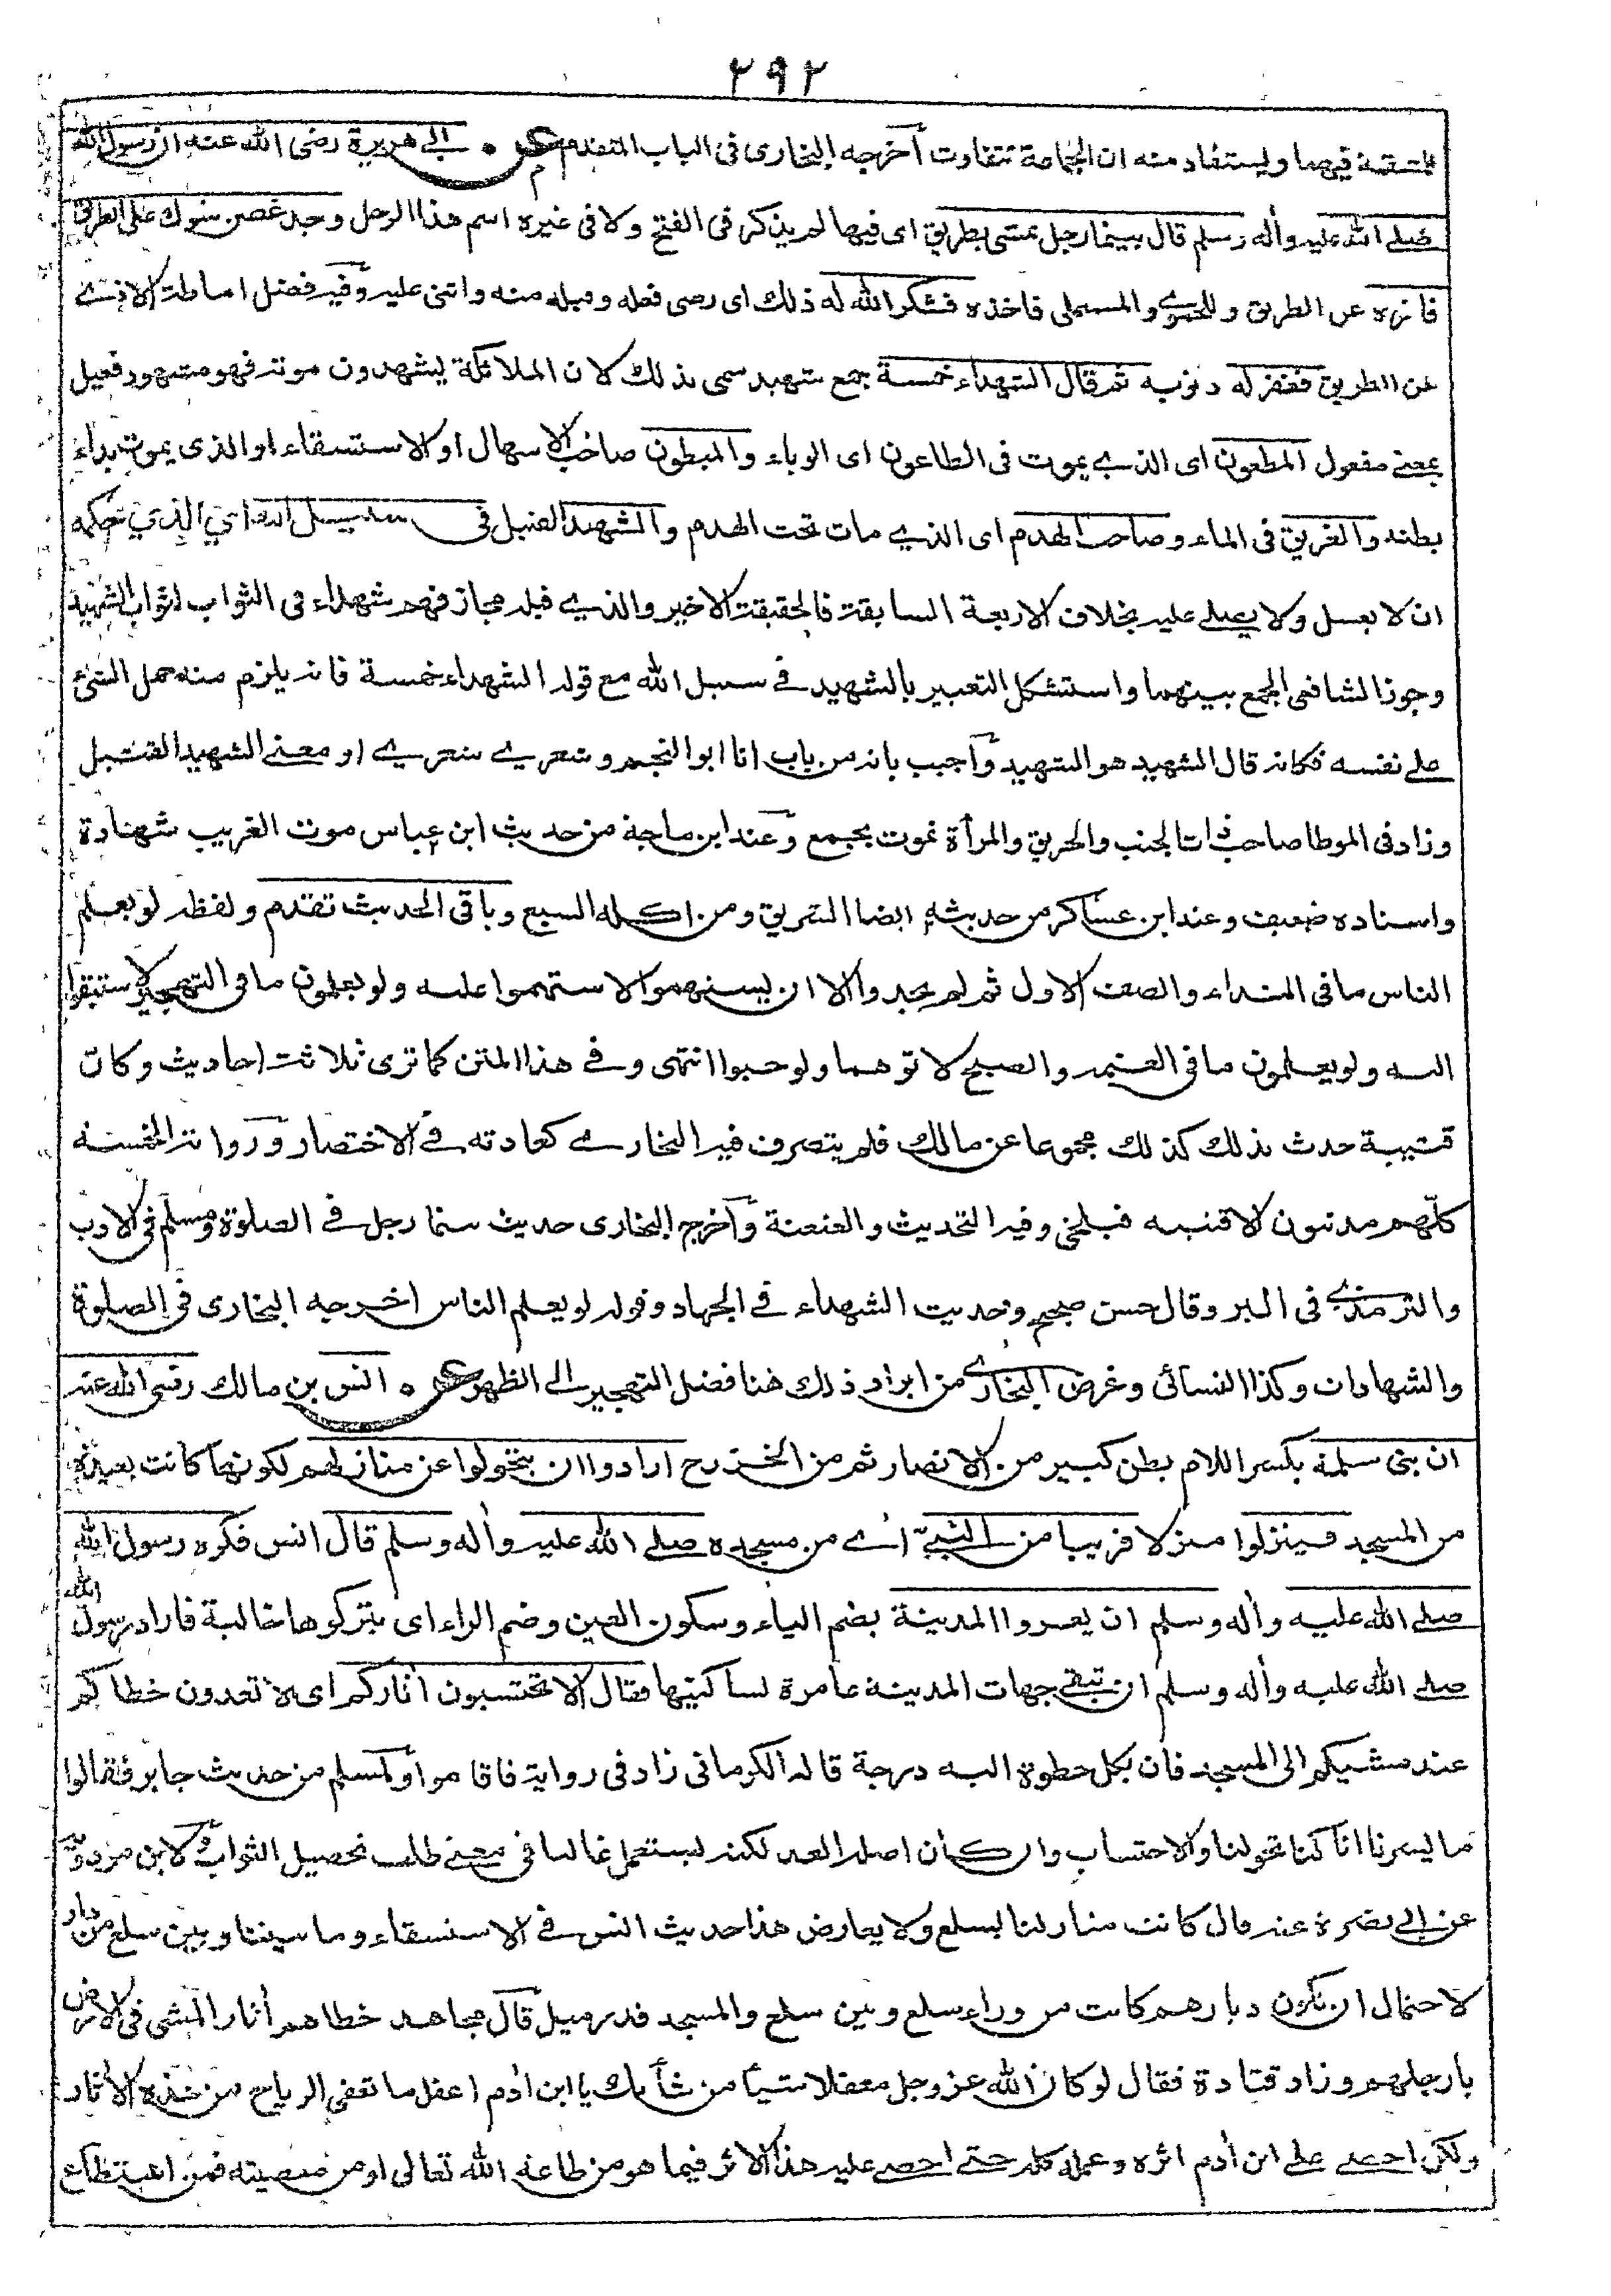 ٢٩٢
المشقة فيهما ويستفاد منه ان الجماعة تتفاوت أخرجه البخارى فى الباب المتقدم عن ابي هريرة رضى الله عنه ان رسول الله
صلے الله عليه وأله وسلم قال بينما رجل يمشى بطريق اى فيها لم يذكر فى الفتح ولا فى غيره اسم هذا الرجل وجد غصن شوك على الطريق
فاخره عن الطريق وللحموے والمستملى فاخذه فشكر الله له ذلك اى رضى فعله وقبله منه واثنى عليه وفيه فضل اماطة الاذے
عن الطريق فغفر له ذنوبه ثم قال الشهداء خمسة جمع شهيد سمى بذلك لان الملائكة يشهدون موته فهو مشهود فعيل
بمعنے مفعول المطعون اى الذے يموت فى الطاعون اى الوباء والمبطون صاحب الاسهال او الاستسقاء او الذى يموت بداء
بطنه والغريق فى الماء وصاحب الهدم اى الذے مات تحت الهدم والشهيد القتيل فى سبيل الله اي الذي حكمه
ان لا يغسل ولا يصلے عليه بخلاف الاربعة السابقة فالحقيقة الاخير والذے قبله مجاز فهم شهداء فى الثواب لثواب الشهيد
وجوز الشافعى الجمع بينهما واستشكل التعبير بالشهيد فے سبيل الله مع قوله الشهداء خمسة فانه يلزم منه حمل الشئ
علے نفسه فكانه قال الشهيد هو الشهيد وأجيب بانه من باب انا ابو النجم وشعرے شعرے او معنے الشهيد القتيل
وزاد فى الموطا صاحب ذات الجنب والحريق والمرأة تموت بجمع وعند ابن ماجة من حديث ابن عباس موت الغريب شهادة
واسناده ضعيف وعند ابن عساكر من حديثه ايضا الشريق ومن اكله السبع وباقى الحديث تقدم ولفظه لو يعلم
الناس ما فى النداء والصف الاول ثم لم يجدوا الا ان يستهموا لاستهموا عليه ولو يعلمون ما فى التهجير لاستبقوا
اليه ولو يعلمون ما فى العتمة والصبح لاتوهما ولو حبوا انتهى وفے هذا المتن كما ترى ثلاثة احاديث وكان
قتيبة حدث بذلك كذلك مجموعا عن مالك فلم يتصرف فيه البخارے كعادته فے الاختصار ورواته الخمسة
كلهم مدنيون الا قتيبه فبلخى وفيه التحديث والعنعنة وأخرج البخارى حديث بينما رجل فے الصلوة ومسلم فى الادب
والترمذے فى البر وقال حسن صحيح وحديث الشهداء فے الجهاد وقوله لو يعلم الناس اخرجه البخارى فى الصلوة
والشهادات وكذا النسائى وغرض البخارے من ايراد ذلك هنا فضل التهجير الى الظهر عن انس بن مالك رضى الله عنه
ان بنى سلمة بكسر اللام بطن كبير من الانصار ثم من الخزرج ارادوا ان يتحولوا عن منازلهم لكونها كانت بعيدة
من المسجد فينزلوا منزلا قريبا من النبيّ اے من مسجده صلے الله عليه وأله وسلم قال انس فكره رسول الله
صلے الله عليه وأله وسلم ان يعروا المدينة بضم الياء وسكون العين وضم الراء اى يتركوها خالية فاراد رسول الله
صلے الله عليه وأله وسلم ان تبقے جهات المدينة عامرة لساكنيها فقال الا تحتسبون أثاركم اى الا تعدون خطاكم
عند مشيكم الى المسجد فان بكل خطوة اليه درجة قاله الكرمانى زاد فى رواية فاقاموا ولمسلم من حديث جابر فقالوا
ما يسرنا انا كنا تحولنا والاحتساب وان كان اصله العد لكنه يستعمل غالبا فى معنے طلب تحصيل الثواب ولابن مردويه
عن ابي نضرة عنه قال كانت منازلنا بسلع ولا يعارض هذا حديث انس فے الاستسقاء وما بيننا وبين سلع من دار
لاحتمال ان تكون ديارهم كانت من وراء سلع وبين سلع والمسجد قدر ميل قال مجاهد خطاهم أثار المشى فى الارض
بارجلهم وزاد قتادة فقال لو كان الله عز وجل مغفلا شيأ من شأنك يا ابن أدم اغفل ما تعفى الرياح من هذه الأثار
ولكن احصے علے ابن أدم اثره وعمله كله حتے احصے عليه هذا الاثر فيما هو من طاعة الله تعالى او من معصيته فمن استطاع